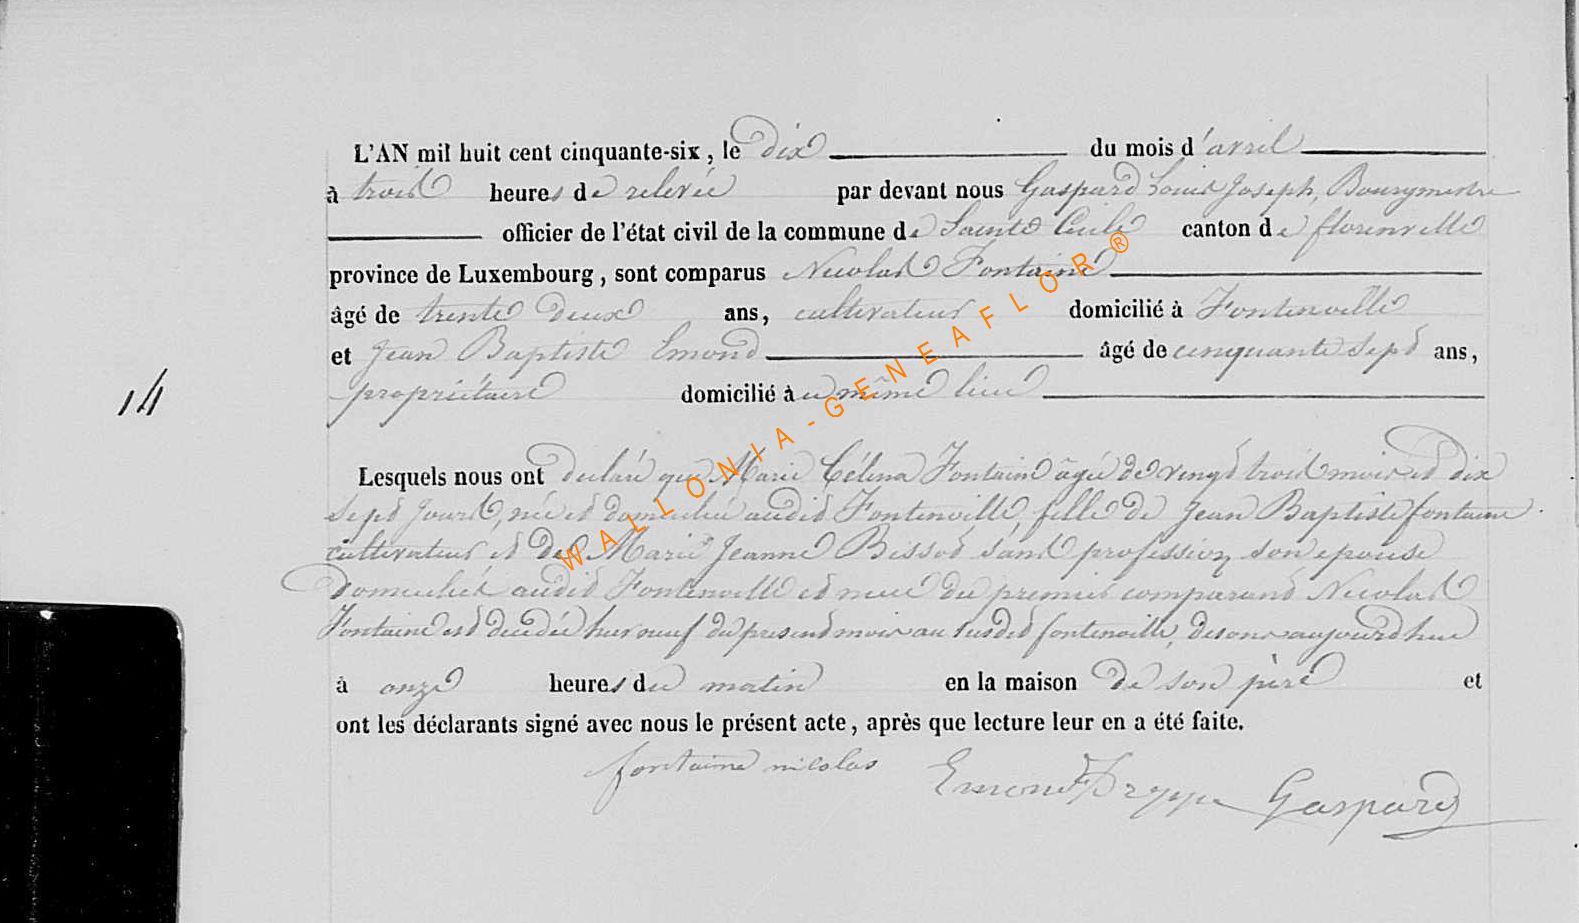 L'AN mil huit cent cinquante-six, le dix du mois d'avril
à trois heures de relevée par devant nous Gaspard Louis Joseph, Bourgmestre
officier de l'état civil de la commune de Sainte Cécile canton de florenville
province de Luxembourg, sont comparus Nicolas Fontaine
âgé de trente deux ans, cultivateur domicilié à Fontenoille
et Jean Baptiste Emond âgé de cinquante sept ans,
propriétaire domicilié à même lieu
14
Lesquels nous ont declaré que Marie Célina Fontaine âgée de vingt trois mois et dix
sept jours, née et domiciliée audit Fontenoille, fille de Jean Baptiste fontaine
cultivateur et de Marie Jeanne Bissot sans profession son epouse
domiciliés audit Fontenoille et niece du premier comparant Nicolas
Fontaine est decedée hier neuf du present mois au susdit fontenoille, aujourd'hui
à onze heures du matin en la maison de son père et
ont les déclarants signé avec nous le présent acte, après que lecture leur en a été faite.
fontaine nicolas Emond Gaspard
WALLONIA-GENEAFLOR®